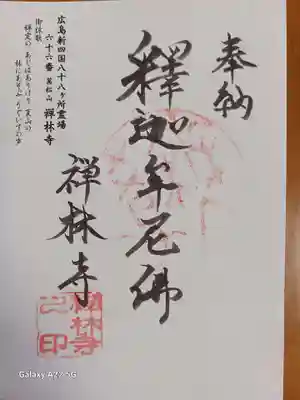 奉納
釋迦牟尼佛
禅林寺
広島新四国八十八ヶ所霊場
六十六番 萬松山 禅林寺
御詠歌
禅林寺之印
Galaxy A22 5G